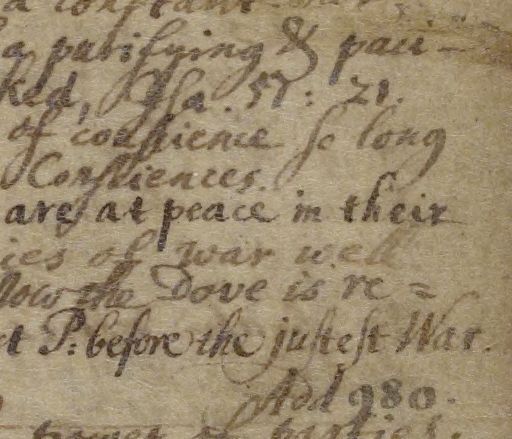 a constant
a purifying & paci-
ked, Isa. 57: 21.
of conscience so long
Consciences.
are at peace in their
ies of war well
Now the Dove is re=
t P: before the justest War.
Add 980.
power of parties.